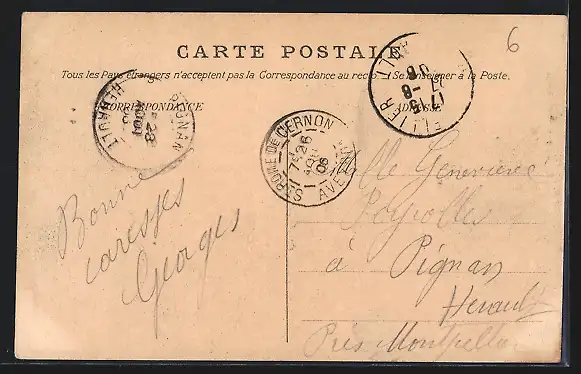 6
CARTE POSTALE
Tous les Pays étrangers n'acceptent pas la Correspondance au recto. (Se renseigner à la Poste.
CORRESPONDANCE
ADRESSE
PIGNAN
HERAULT
28
AOUT
ST ROME DE CERNON
26
06
AVEYRON
MONTPELLIER
HERAULT
Bonne
caresses
Georges
Mlle Geneviève
Peyrolles
à Pignan
Herault
Près Montpellier